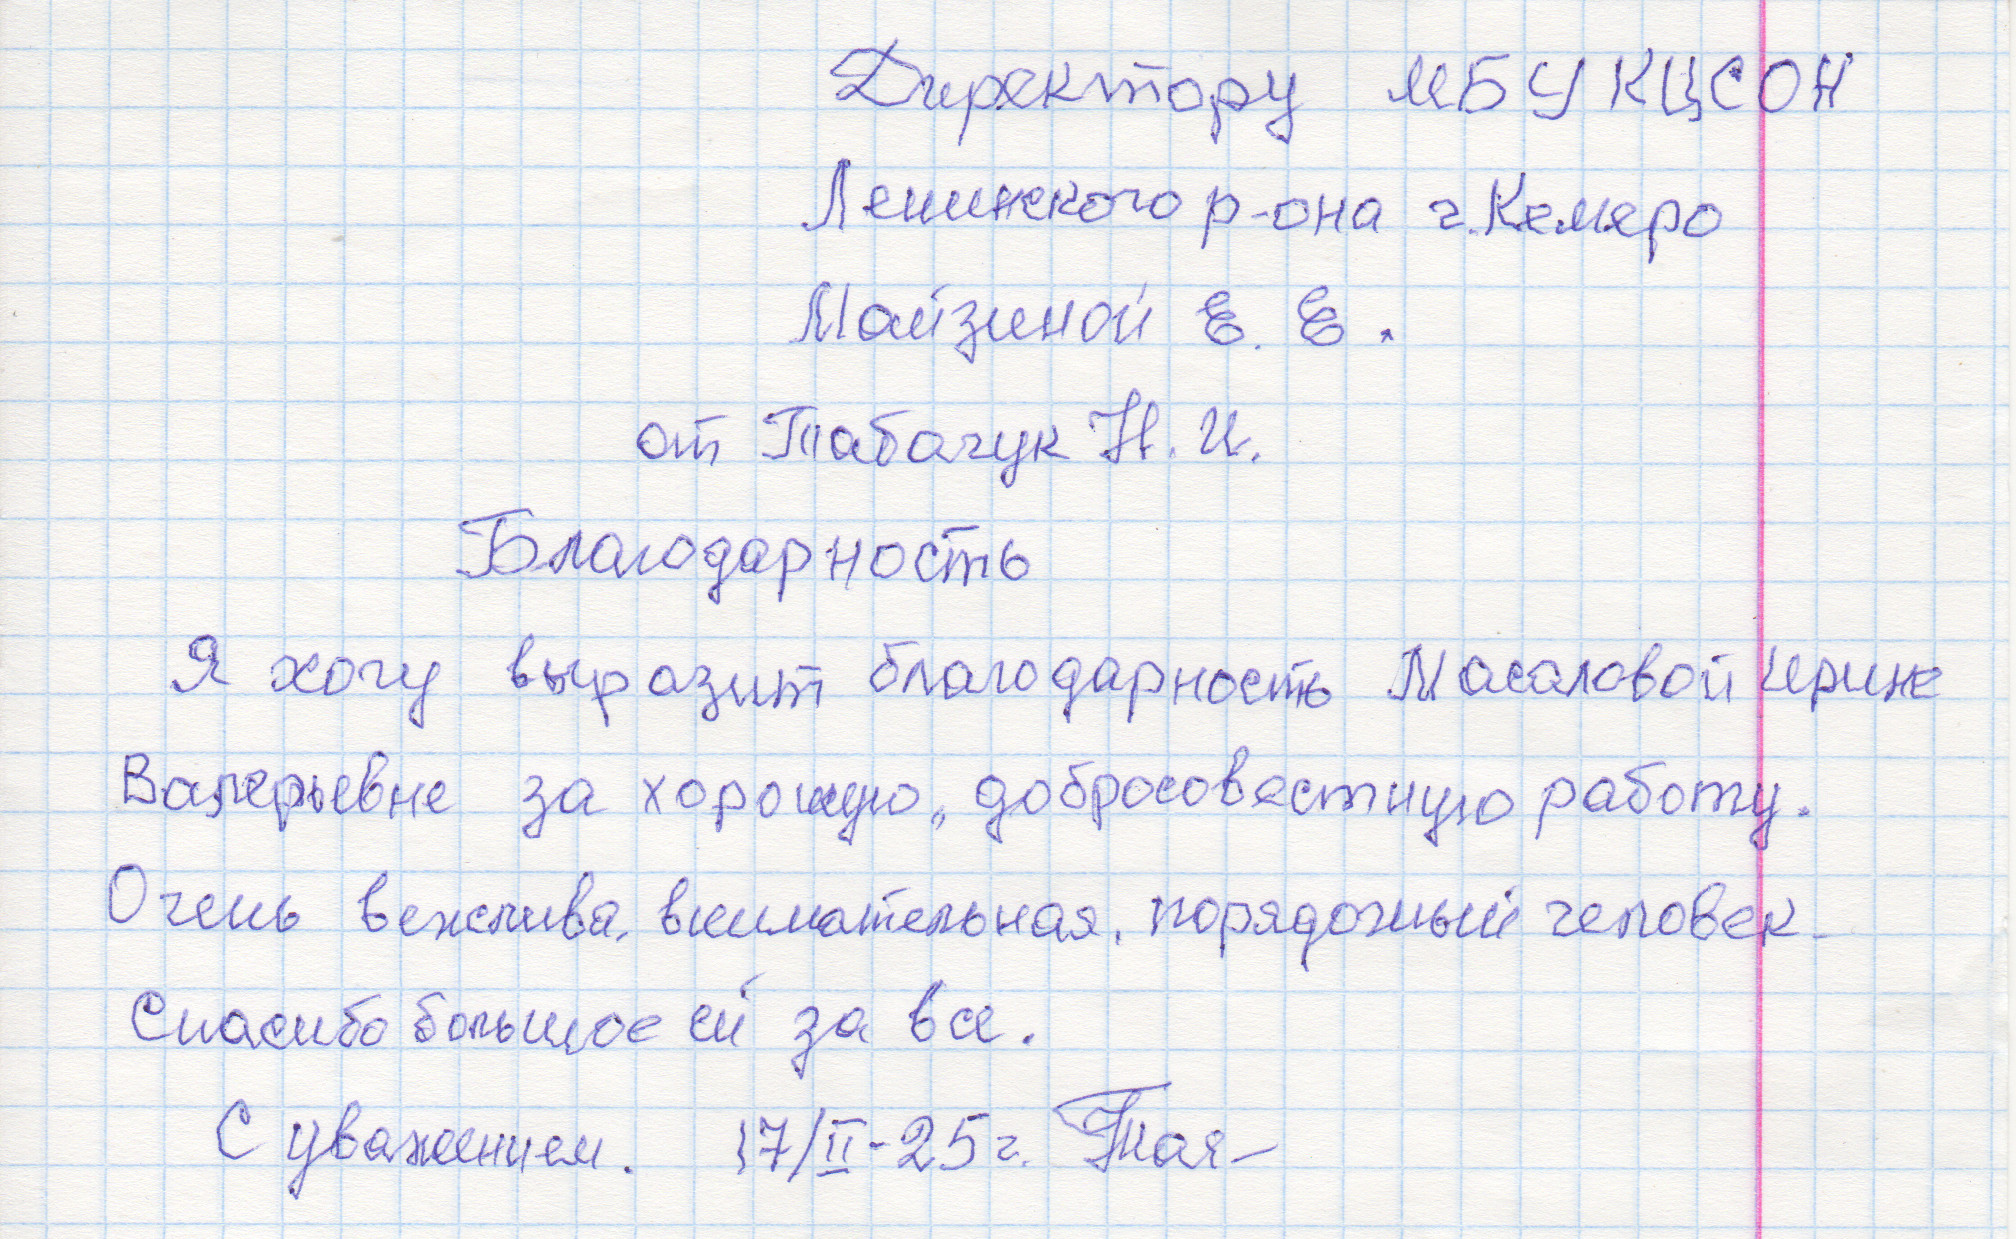 Директору МБУ КЦСОН
Ленинского р-она г. Кемеро
Майзиной Е. Е.
от Табачук Н. И.
Благодарность
Я хочу выразит благодарность Масаловой Ирине
Валерьевне за хорошую, добросовестную работу.
Очень вежлива, внимательная, порядочный человек.
Спасибо большое ей за все.
С уважением. 17/II-25г.